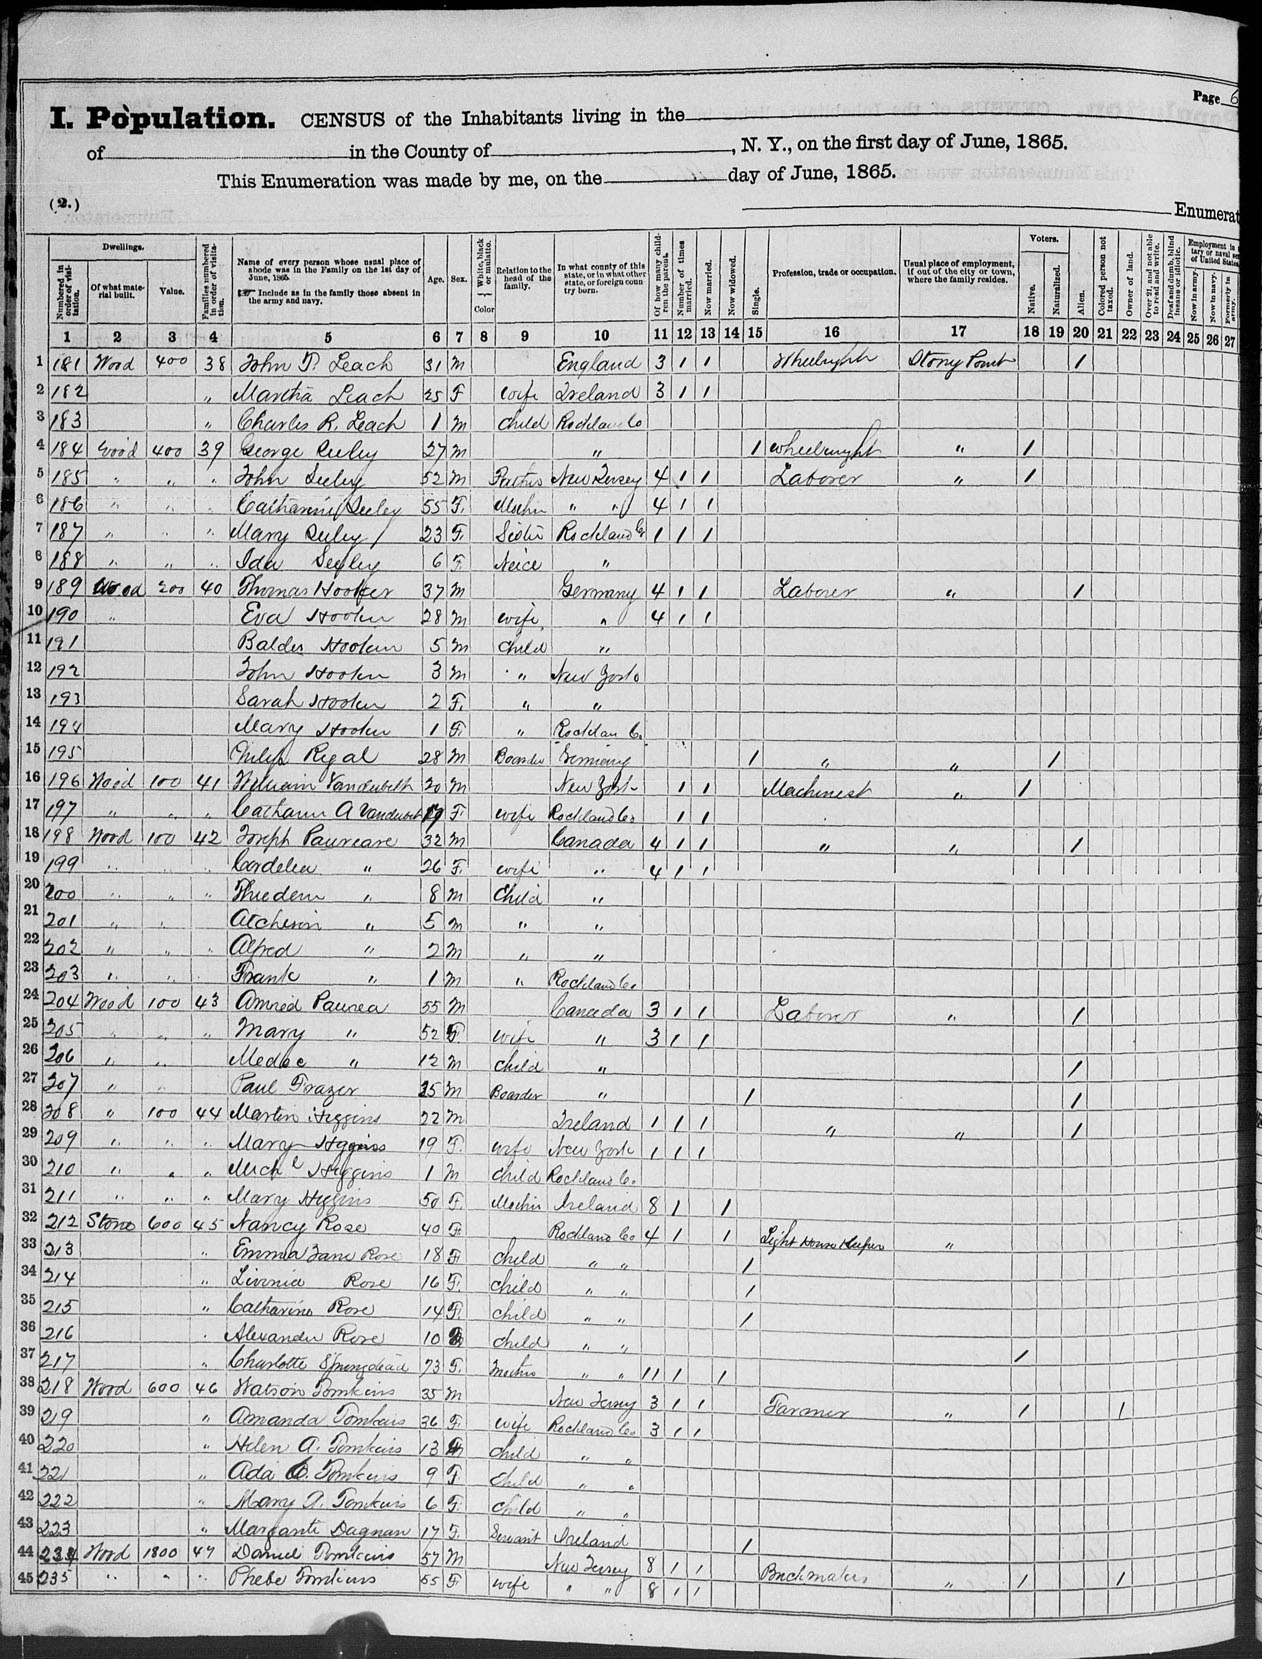 Page 6
I. Population. CENSUS of the Inhabitants living in the
of in the County of , N. Y., on the first day of June, 1865.
This Enumeration was made by me, on the day of June, 1865.
(2.) Enumerat
Numbered in order of visitation. Dwellings. Of what material built. Value. Families numbered in order of visitation. Name of every person whose usual place of abode was in the Family on the 1st day of June, 1865. Include as in the family those absent in the army and navy. Age. Sex. White, black or mulatto. Color Relation to the head of the family. In what county of this state, or in what other state, or foreign country born. Of how many children the parent. Number of times married. Now married. Now widowed. Single. Profession, trade or occupation. Usual place of employment, if out of the city or town, where the family resides. Voters. Native. Naturalized. Alien. Colored person not taxed. Owner of land. Over 21, and not able to read and write. Deaf and dumb, blind insane or idiotic. Now in army. Now in navy. Formerly in army.
1 2 3 4 5 6 7 8 9 10 11 12 13 14 15 16 17 18 19 20 21 22 23 24 25 26 27
1 181 Wood 400 38 John T. Leach 31 M England 3 1 1 Wheelright Stony Point 1
2 182 " Martha Leach 25 F wife Ireland 3 1 1
3 183 " Charles R. Leach 1 M Child Rockland Co
4 184 Wood 400 39 George Seeley 27 M " 1 Wheelwright " 1
5 185 " " " John Seeley 52 M Father New Jersey 4 1 1 Laborer " 1
6 186 " " " Catharine Seeley 55 F. Mother " " 4 1 1
7 187 " " " Mary Seeley 23 F. Sister Rockland Co 1 1 1
8 188 " " " Ida Seeley 6 F. Neice "
9 189 Wood 200 40 Thomas Hooker 37 M Germany 4 1 1 Laborer " 1
10 190 " Eva Hooker 28 M wife " 4 1 1
11 191 Balder Hooker 5 M Child "
12 192 John Hooker 3 M " New York
13 193 Sarah Hooker 2 F. " "
14 194 Mary Hooker 1 F. " Rocklan C.
15 195 Philip Regal 28 M Boarder Germany 1 " " 1
16 196 Wood 100 41 William Vanderbeth 20 M New York 1 1 Machinest " 1
17 197 " " " Catharine A Vanderbeth 19 F. wife Rockland Co 1 1
18 198 Wood 100 42 Joseph Paureare 32 M Canada 4 1 1 " " 1
19 199 " " " Cordelea " 26 F. wife " 4 1 1
20 200 " " " " 8 M Child "
21 201 " " Atcheson " 5 M " "
22 202 " " " Alfred " 2 M " "
23 203 " " Frank " 1 M " Rockland Co.
24 204 Wood 100 43 Paurea 55 M Canada 3 1 1 Laborer " 1
25 205 " " " Mary " 52 F wife " 3 1 1
26 206 " " " 12 M Child " 1
27 207 " " Paul Frazer 25 M Boarder " 1 1
28 208 " 100 44 Martin Higgins 22 M Ireland 1 1 1 " " 1
29 209 " " " Mary Higgins 19 F. wife New York 1 1 1
30 210 " " " Mich l Higgins 1 M Child Rockland C.
31 211 " " " Mary Higgins 50 F. Mother Ireland 8 1 1
32 212 Stone 600 45 Nancy Rose 40 F Rockland Co 4 1 1 Light House Keeper "
33 213 " Emma Jane Rose 18 F Child " " 1
34 214 " Livinia Rose 16 F. Child " " 1
35 215 " Catharine Rose 14 F. Child " " 1
36 216 " Alexander Rose 10 M Child " " 1
37 217 " Charlotte Springstead 73 F. Mother " " 11 1 1
38 218 Wood 600 46 Watson Tomkins 35 M New Jersey 3 1 1 Farmer " 1 1
39 219 " Amanda Tomkins 36 F. wife Rockland Co 3 1 1
40 220 " Helen A. Tomkins 13 F Child " "
41 221 " Ada C. Tomkins 9 F Child " "
42 222 " Mary A. Tomkins 6 F. Child " "
43 223 " Margarite Dagnan 17 F. Servant Ireland 1
44 234 Wood 1800 47 Daniel Tomkins 57 M New Jersey 8 1 1 Brickmaker " 1 1
45 235 " " " Phebe Tomkins 55 F wife " " 8 1 1